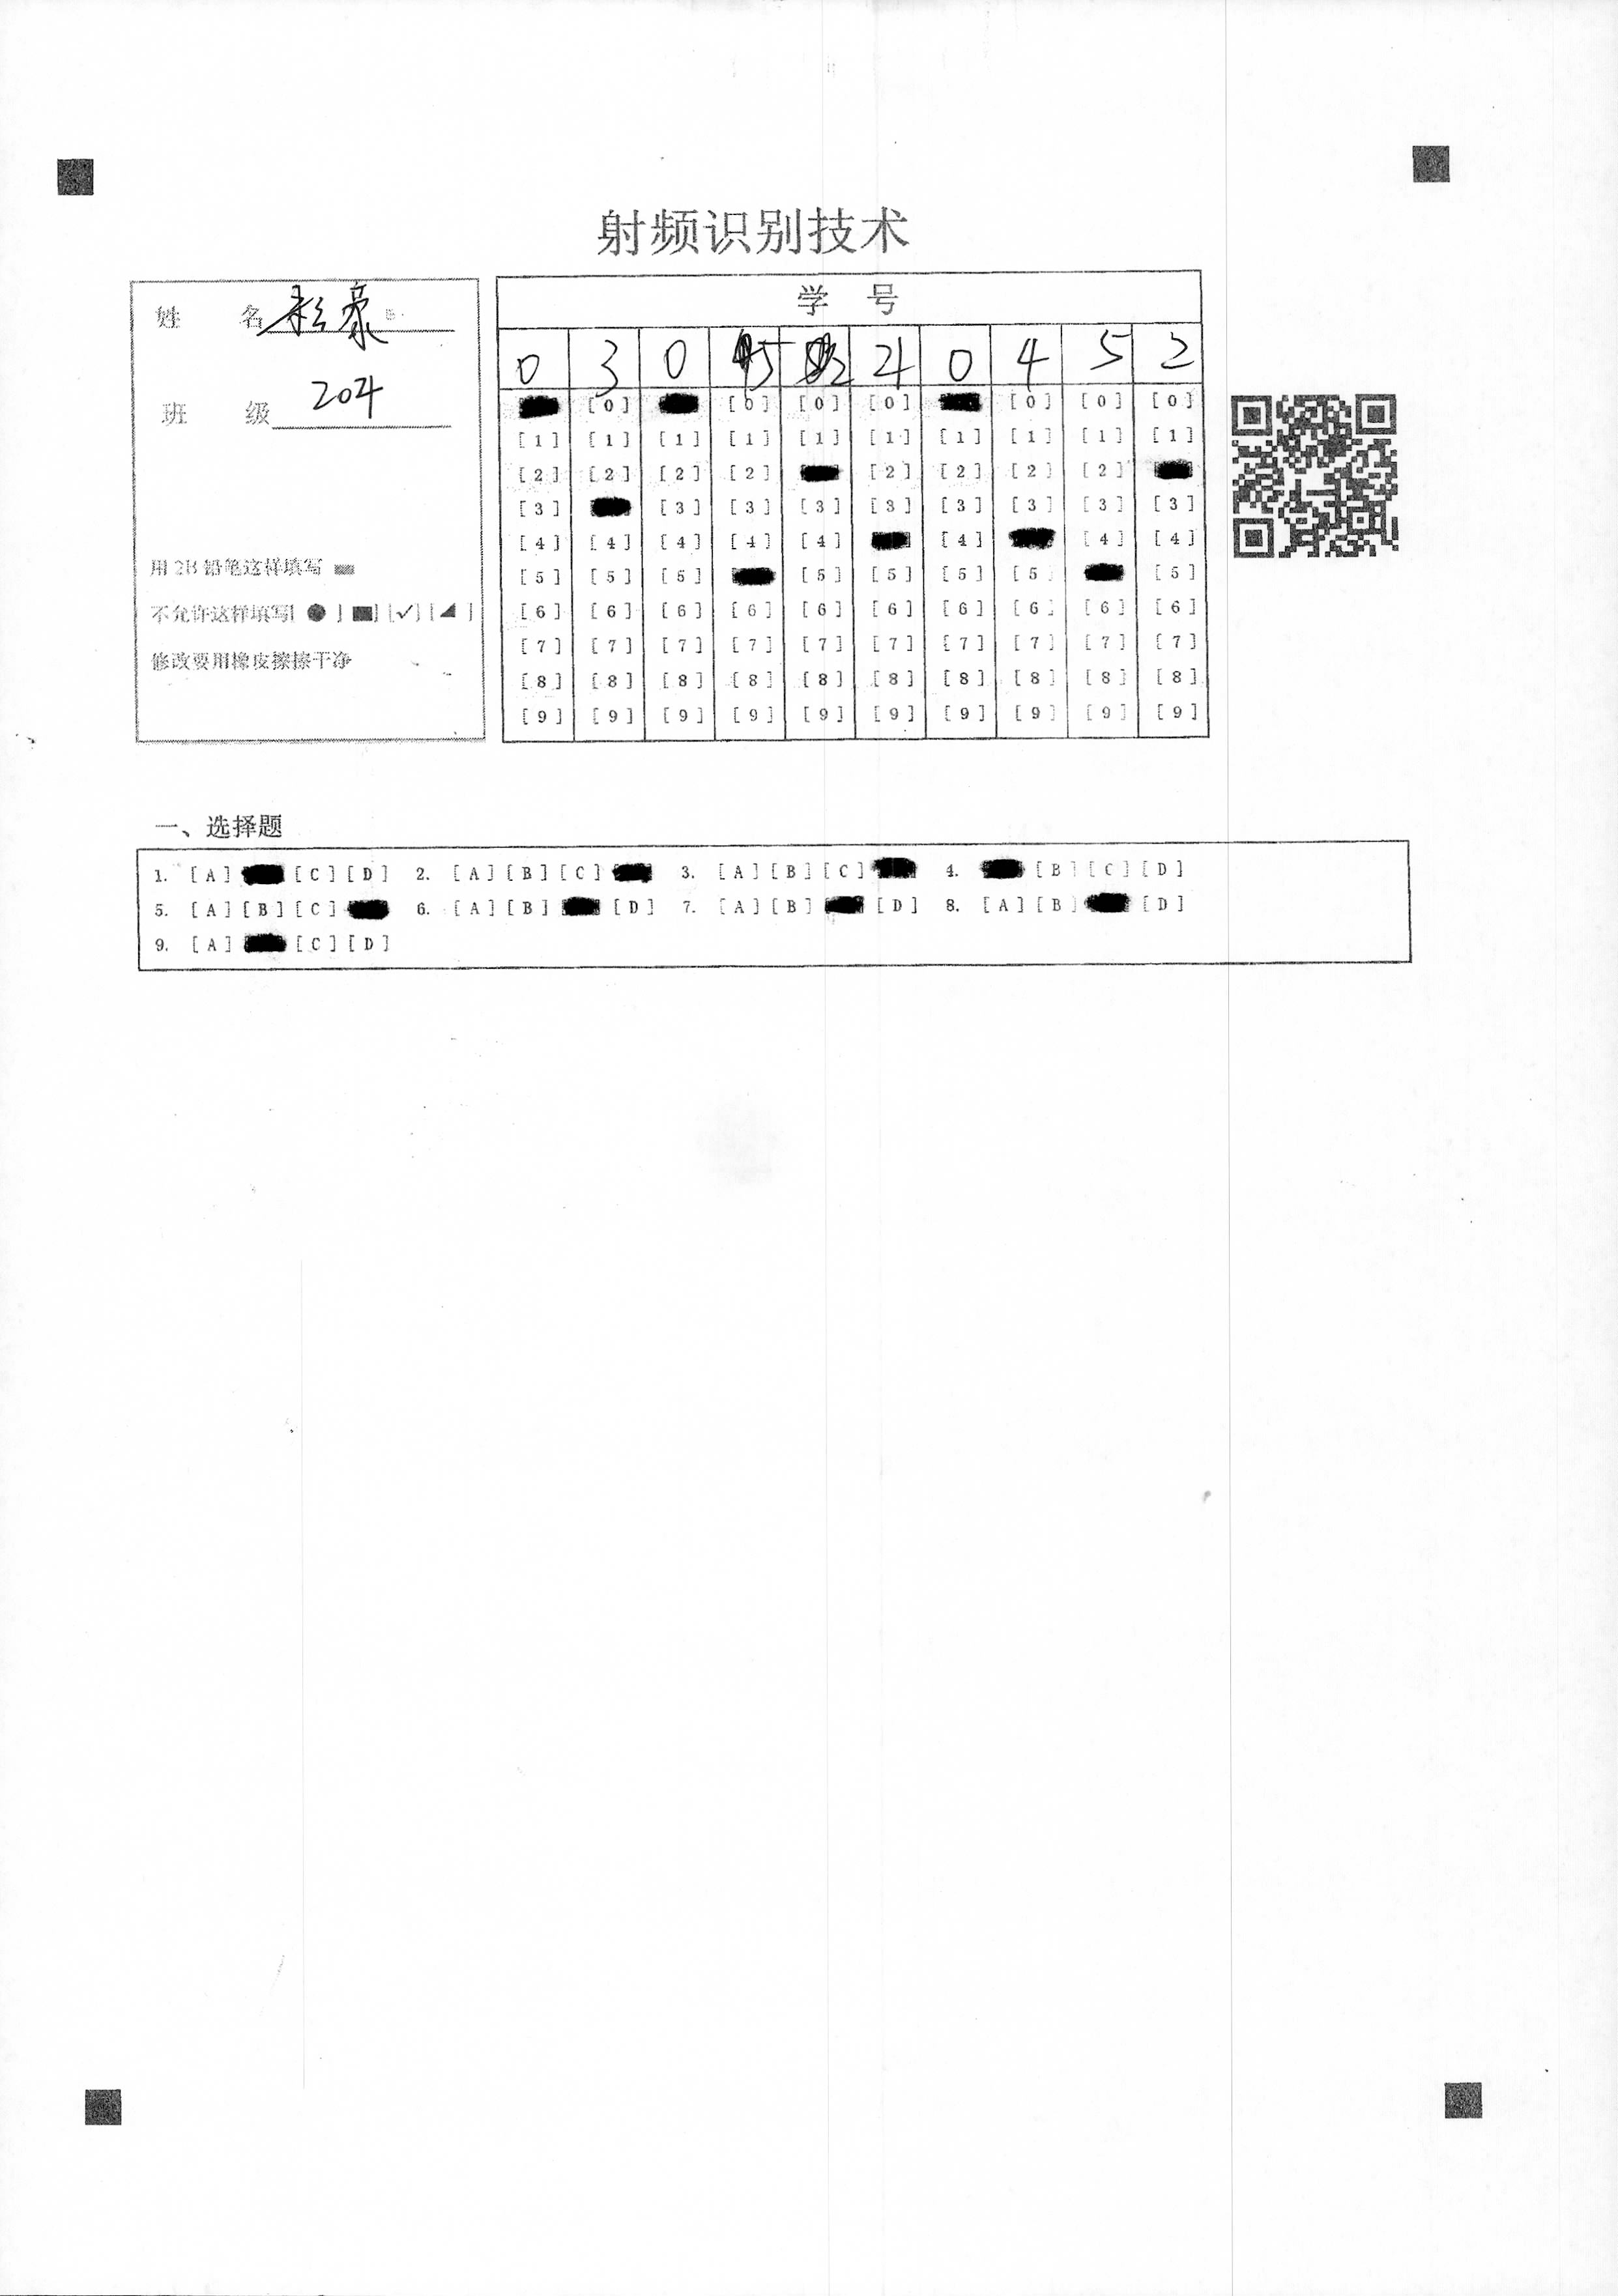 射频识别技术
姓 名 松豪
班 级 204
用 2B 铅笔这样填写
不允许这样填写[●][■][✓][◢]
修改要用橡皮擦擦干净
学 号
0 3 0 5 2 4 0 4 5 2
[0] [0] [0] [0] [0] [0] [0]
[1] [1] [1] [1] [1] [1] [1] [1] [1] [1]
[2] [2] [2] [2] [2] [2] [2] [2]
[3] [3] [3] [3] [3] [3] [3] [3] [3]
[4] [4] [4] [4] [4] [4] [4] [4]
[5] [5] [5] [5] [5] [5] [5] [5]
[6] [6] [6] [6] [6] [6] [6] [6] [6] [6]
[7] [7] [7] [7] [7] [7] [7] [7] [7] [7]
[8] [8] [8] [8] [8] [8] [8] [8] [8] [8]
[9] [9] [9] [9] [9] [9] [9] [9] [9] [9]
一、选择题
1. [A] [C] [D] 2. [A] [B] [C] 3. [A] [B] [C] 4. [B] [C] [D]
5. [A] [B] [C] 6. [A] [B] [D] 7. [A] [B] [D] 8. [A] [B] [D]
9. [A] [C] [D]